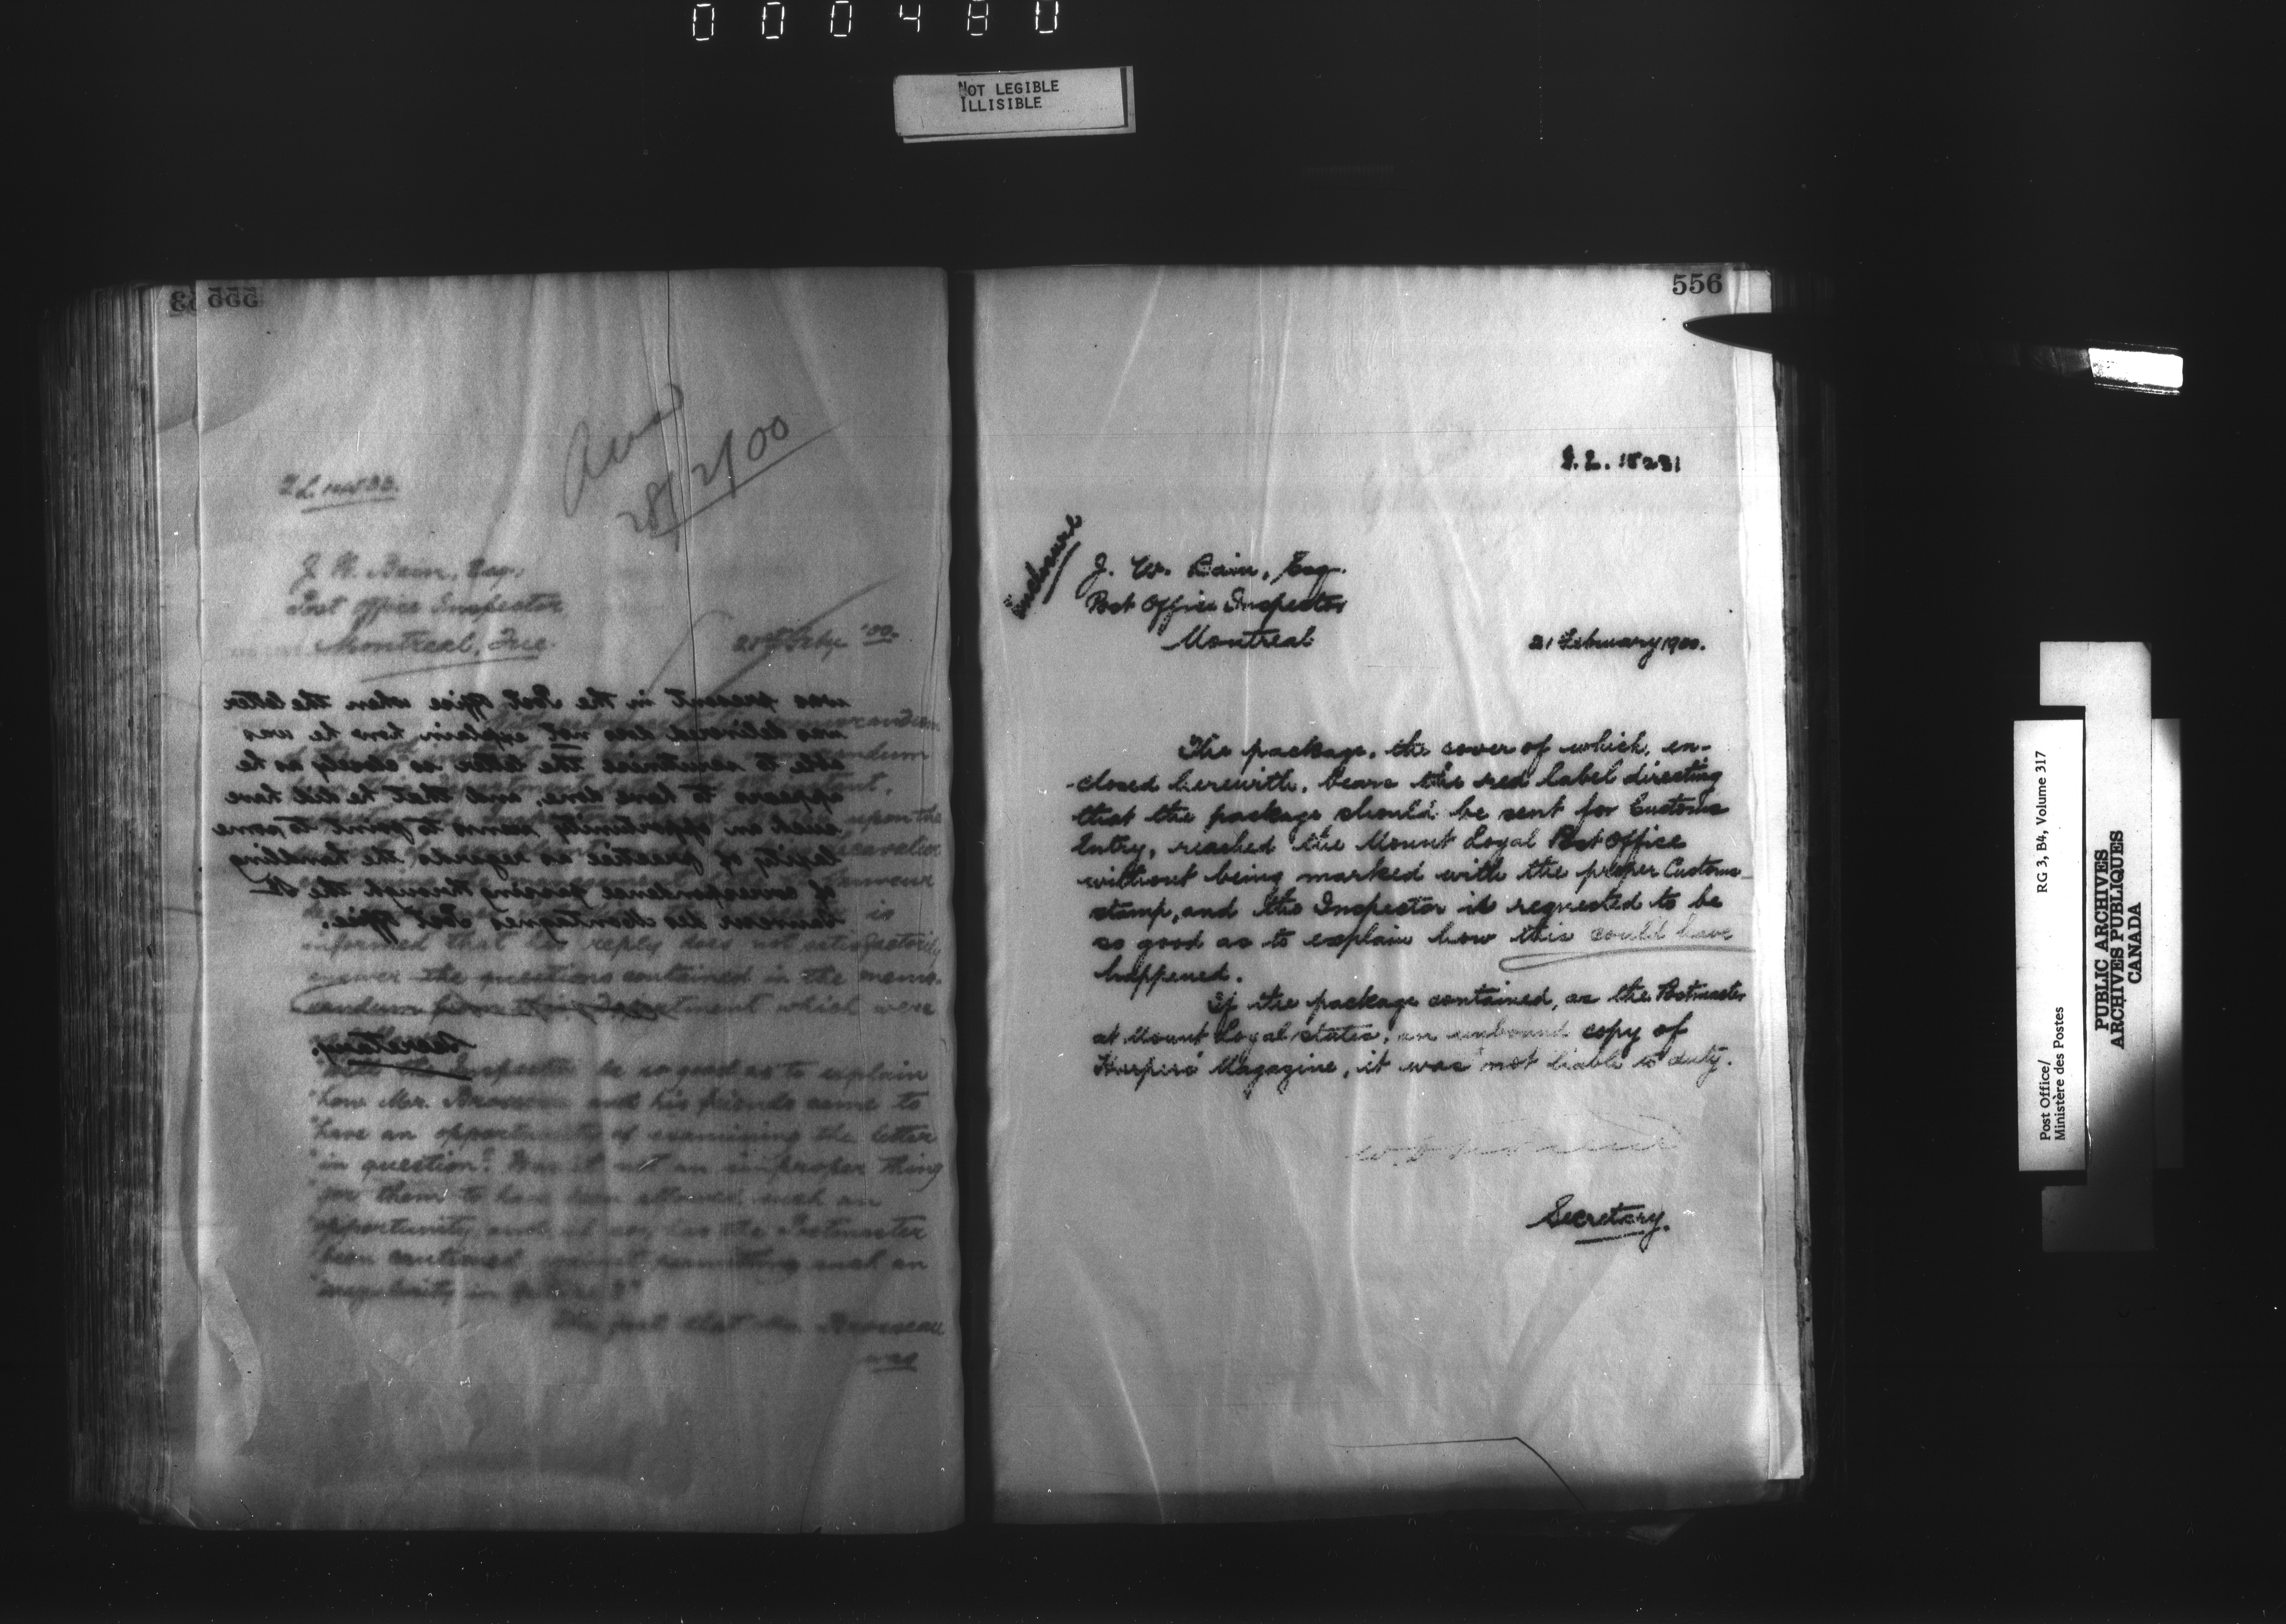 000480
NOT LEGIBLE
ILLISIBLE
555
Ans
28/2/00
J. W. Bain, Esq.
Post Office Inspector
Montreal, Que.
21st Feby '00.
was present in the Post Office when the letter
was delivered does not explain how he was
able to scrutinize the letter so closely as he
appears to have done, and that he did have
such an opportunity seems to point to some
laxity of practice as regards the handling
of correspondence passing through the St
Sauveur des Montagnes Post Office.
Secretary.
informed that his reply does not satisfactorily
answer the questions contained in the memo-
randum from this Department which were
Inspector be so good as to explain
"how Mr. Brosseau and his friends came to
"have an opportunity of examining the letter
"in question? Was it not an improper thing
"for them to have been allowed such an
"opportunity, and, if so, has the Postmaster
"been cautioned against permitting such an
"irregularity in future?"
The fact that Mr. Brosseau
was
556
15231
inclosure
J. W. Bain, Esq.
Post Office Inspector
Montreal
21 February 1900.
The package, the cover of which, en-
-closed herewith, bears the red label directing
that the package should be sent for Customs
Entry, reached the Mount Loyal Post Office
without being marked with the proper Customs
stamp, and the Inspector is requested to be
so good as to explain how this could have
happened.
If the package contained, as the Postmaster
at Mount Loyal states, an unbound copy of
Harpers' Magazine, it was not liable to duty.
Secretary.
Post Office/
Ministère des Postes
RG 3, B4, Volume 317
PUBLIC ARCHIVES
ARCHIVES PUBLIQUES
CANADA